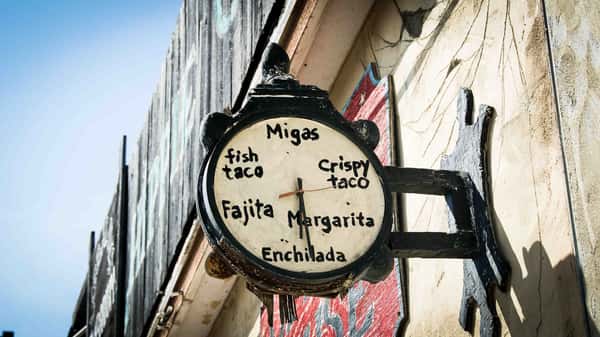 Migas
fish
taco
Crispy
taco
Fajita
Margarita
Enchilada